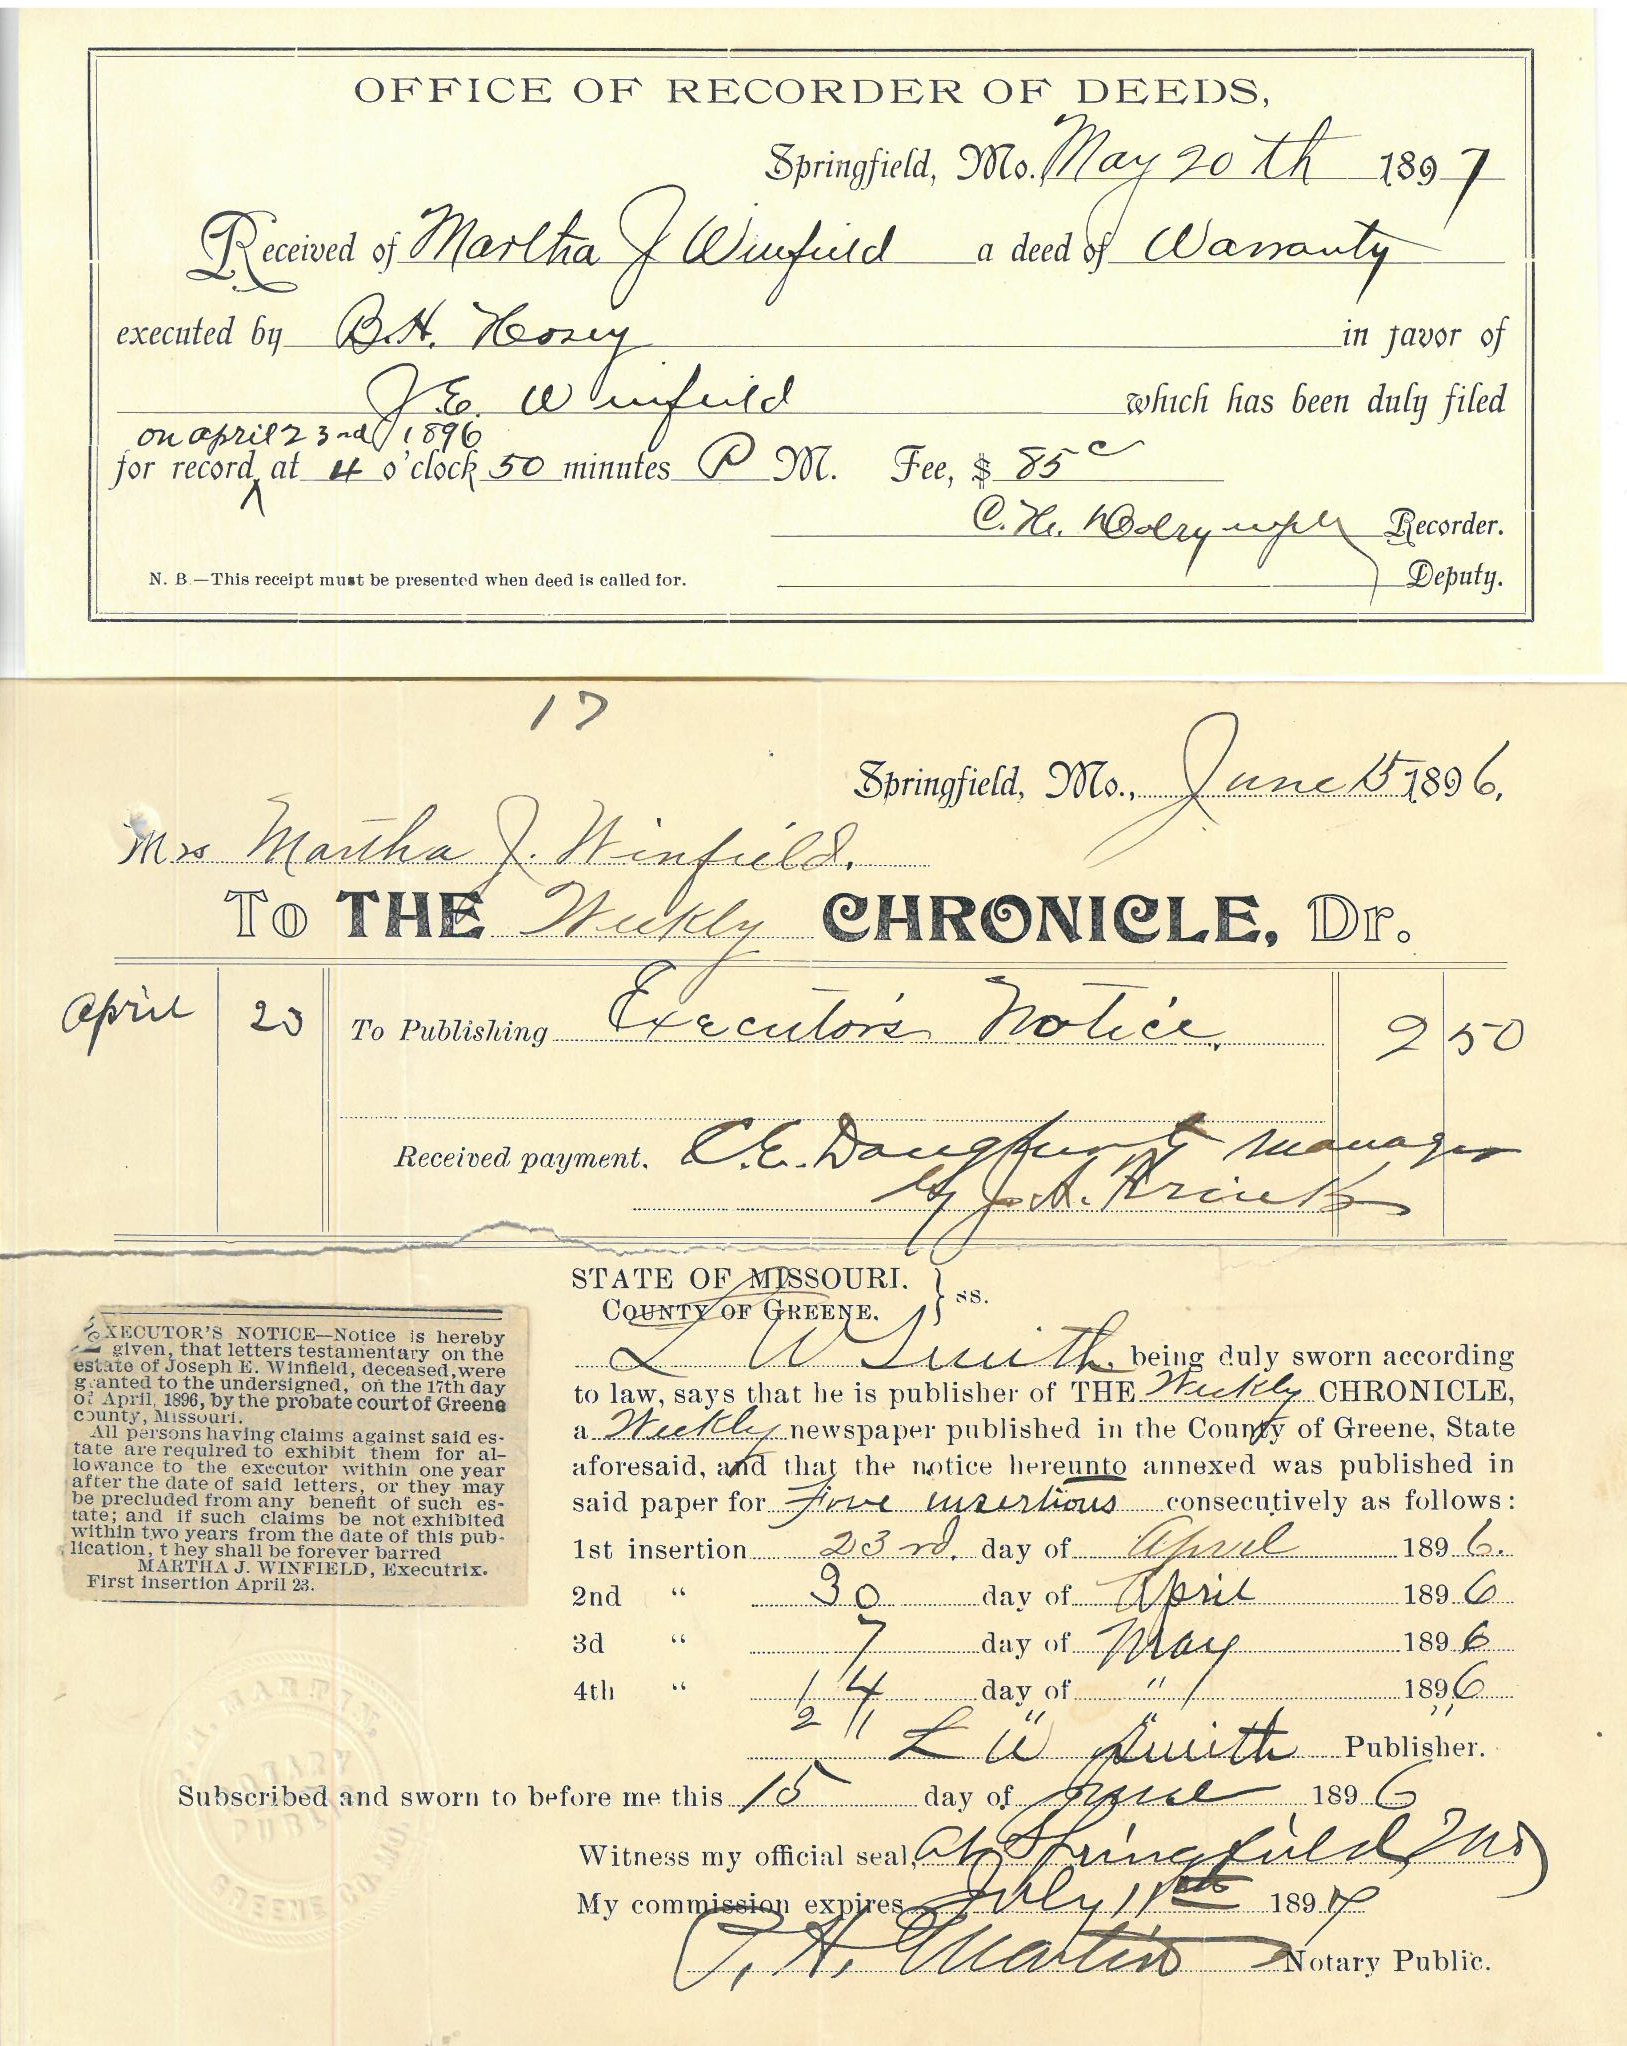 OFFICE OF RECORDER OF DEEDS,
Springfield, Mo. May 20th 1897
Received of Martha J Winfield a deed of Warranty
executed by B.H. Hosey in favor of
J.E. Winfield which has been duly filed
on april 23rd 1896
for record ^ at 4 o'clock 50 minutes P M. Fee, $ 85c
C. H. Recorder.
N. B.—This receipt must be presented when deed is called for. Deputy.
17
Springfield, Mo., June 15 1896.
Mrs Martha J. Winfield.
To THE Weekly CHRONICLE, Dr.
April 23 To Publishing Executor's Notice. 2 50
Received payment. C.E. manager
by J. A.
STATE OF MISSOURI.
COUNTY OF GREENE. } ss.
L W Smith, being duly sworn according
to law, says that he is publisher of THE Weekly CHRONICLE,
a Weekly newspaper published in the County of Greene, State
aforesaid, and that the notice hereunto annexed was published in
said paper for Five insertions consecutively as follows:
1st insertion 23rd. day of April 1896.
2nd " 30 day of April 1896
3d " 7 day of May 1896
4th " 14 day of " 1896
21 " " "
L W Smith Publisher.
Subscribed and sworn to before me this 15 day of June 1896
Witness my official seal, at Springfield Mo
My commission expires July 11th 1897
P. H. Martin Notary Public.
EXECUTOR'S NOTICE—Notice is hereby
given, that letters testamentary on the
estate of Joseph E. Winfield, deceased, were
granted to the undersigned, on the 17th day
of April, 1896, by the probate court of Greene
county, Missouri.
All persons having claims against said es-
tate are required to exhibit them for al-
lowance to the executor within one year
after the date of said letters, or they may
be precluded from any benefit of such es-
tate; and if such claims be not exhibited
within two years from the date of this pub-
lication, t hey shall be forever barred
MARTHA J. WINFIELD, Executrix.
First insertion April 23.
H. MARTIN.
NOTARY
PUBLIC
GREENE CO. MO.